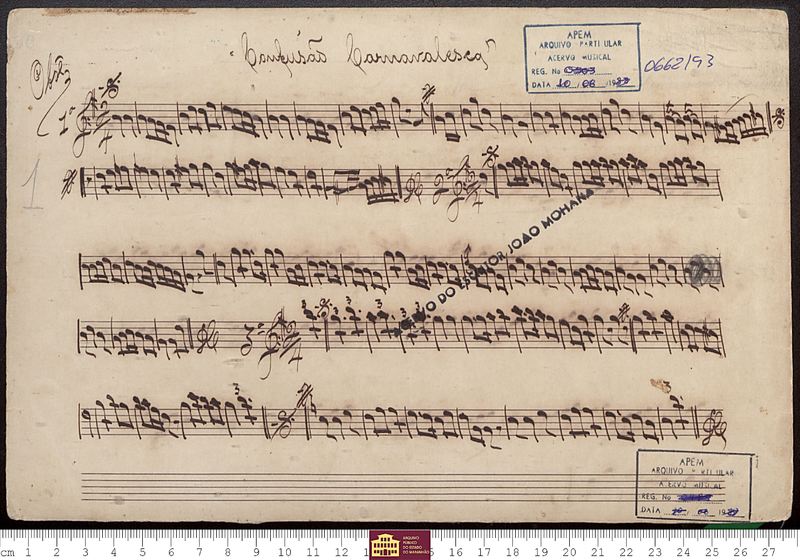 "Confusão Carnavalesca"
APEM
ARQUIVO PARTICULAR
ACERVO MUSICAL
REG. No
DATA 10 / 08 / 19
0662/93
1ª
2/4
1
2/4
ACERVO DO ESCRITOR JOÃO MOHANA
3ª
2/4
3 3 3 3 3
3
3
APEM
ARQUIVO PARTICULAR
ACERVO MUSICAL
REG. No
DATA
cm 1 2 3 4 5 6 7 8 9 10 11 12 1 15 16 17 18 19 20 21 22 23 24 25 26 27
ARQUIVO
PÚBLICO
DO ESTADO
DO MARANHÃO